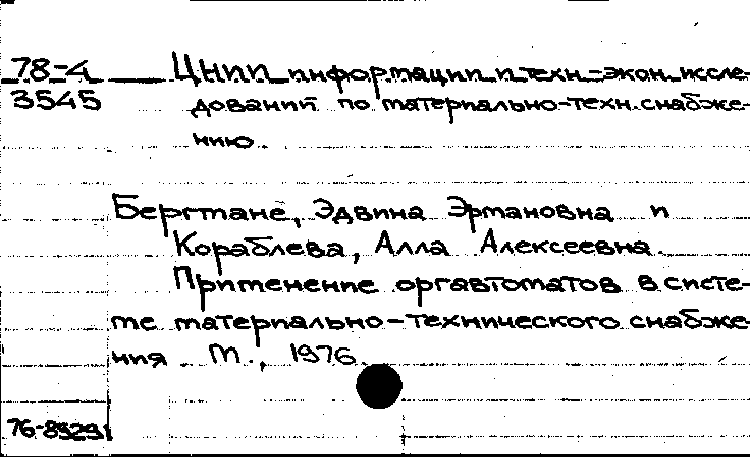 78-4 ЦНИИ информации и техн.-экон. иссле-
3545 дований по материально-техн. снабже-
нию.
Бергмане, Эдвина Эрмановна и
Кораблева, Алла Алексеевна.
Применение оргавтоматов в систе-
ме материально-технического снабже-
ния М., 1976.
76-89291